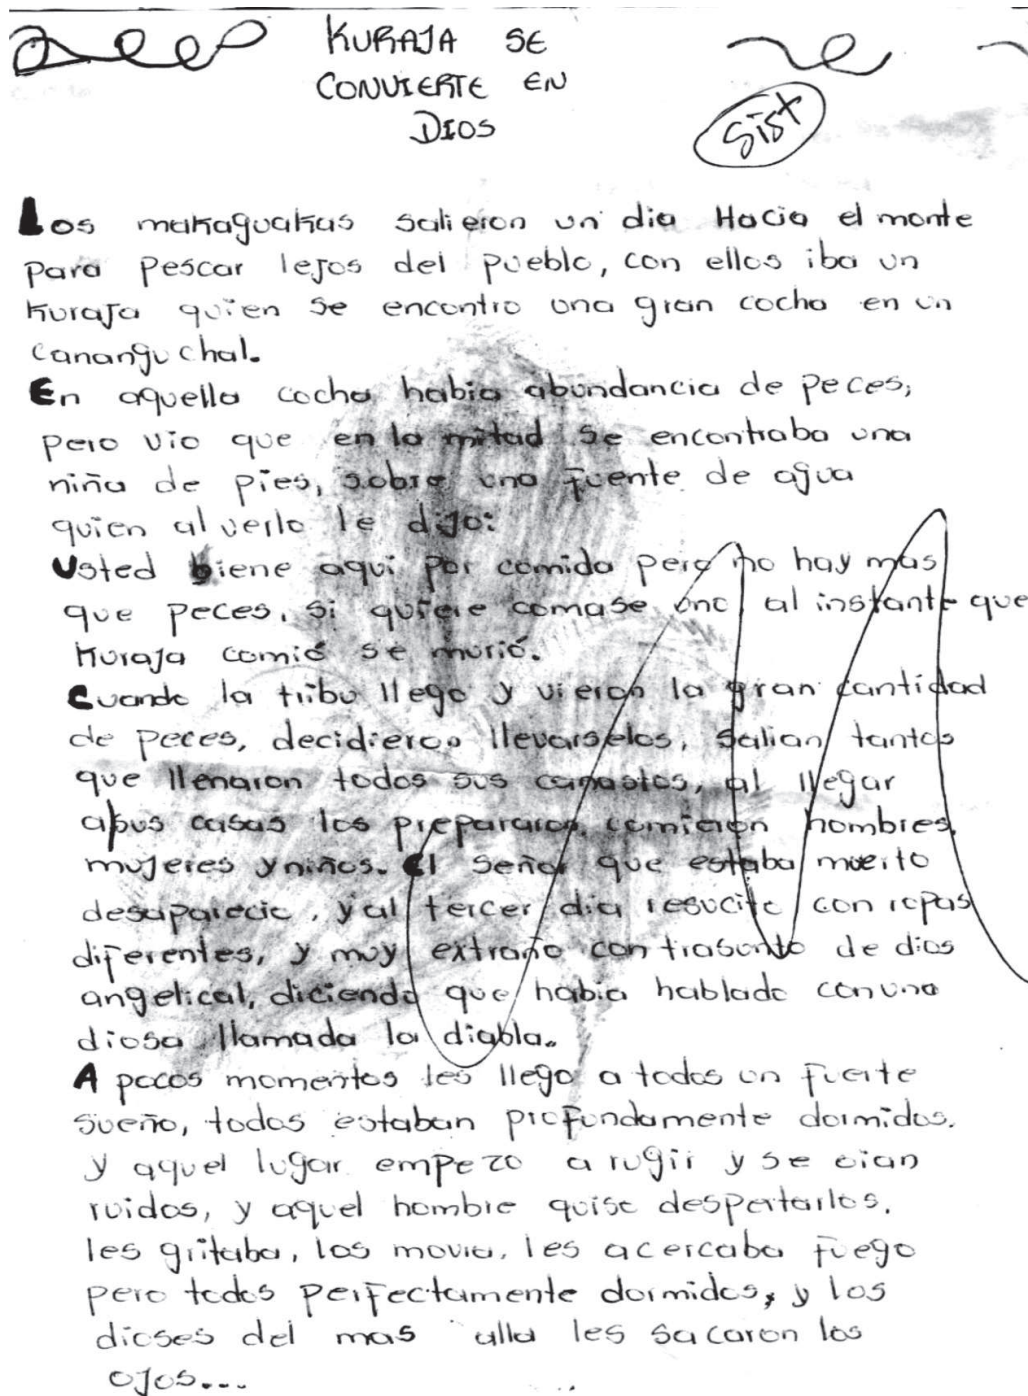 KURAJA SE
CONVIERTE EN
DIOS
Sist
Los makaguakas salieron un dia Hacia el monte
para pescar lejos del pueblo, con ellos iba un
kuraja quien se encontro una gran cocha en un
cananguchal.
En aquella cocha habia abundancia de peces;
pero vio que en la mitad se encontraba una
niña de pies, sobre una fuente de agua
quien al verlo le dijo:
Usted biene aqui por comida pero no hay mas
que peces, si quiere comase uno, al instante que
kuraja comió se murió.
Cuando la tribu llego y vieron la gran cantidad
de peces, decidieron llevarselos, salian tantos
que llenaron todos sus canastos, al llegar
a sus casas los prepararon, comieron hombres,
mujeres y niños. El señor que estaba muerto
desaparecio, y al tercer dia resucito con ropas
diferentes, y muy extraño con trasunto de dios
angelical, diciendo que habia hablado con una
diosa llamada la diabla.
A pocos momentos les llego a todos un fuerte
sueño, todos estaban profundamente dormidos.
y aquel lugar empezo a rugir y se oian
ruidos, y aquel hombre quiso despertarlos,
les gritaba, los movia, les acercaba fuego
pero todos perfectamente dormidos, y los
dioses del mas alla les sacaron los
ojos...